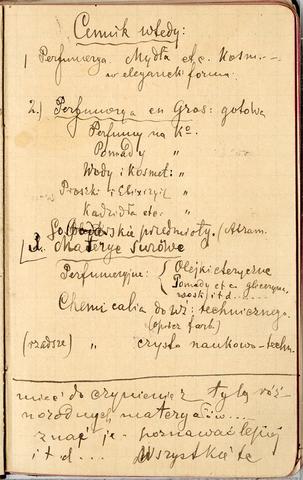 Cennik wtedy:
1 Perfumerya. Mydła etc. Kosm. —
w eleganck formie.
2.) Perfumerya en Gros: gotowa
Perfumy na Kº.
Pomady "
Wody i kosmet: "
Proszki i Elixiry "
Kadzidła etc. "
przedmioty. (Atram.
Materye surowe
Perfumeryjne: { Olejki eteryczne
Pomady et c. gliceryna,
woski itd .....
Chemicalia do techniczneg.
(oprócz farb)
(rzadsze) " czysto naukowo-techn.
mieć do czynienia z tylą róż-
norodnych materyałów....
znać je - poznawać lepiej
itd... Wszystkie te